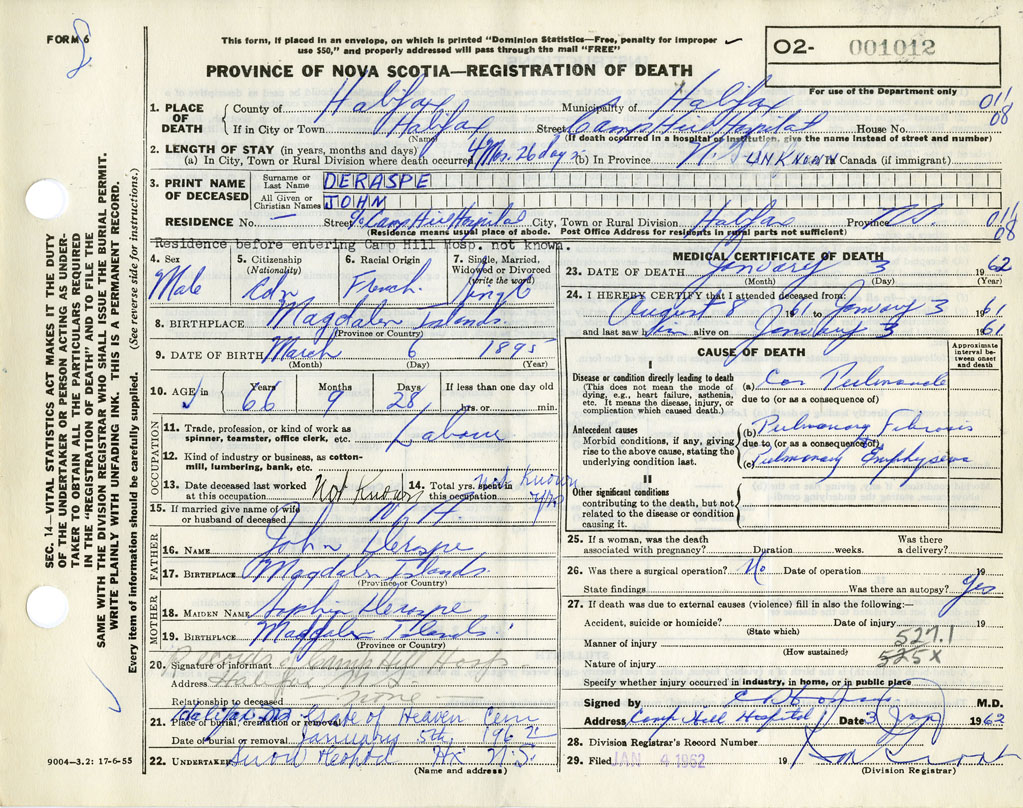 FORM 6
This form, if placed in an envelope, on which is printed "Dominion Statistics—Free, penalty for improper
use $50," and properly addressed will pass through the mail "FREE"
02- 001012
For use of the Department only
PROVINCE OF NOVA SCOTIA—REGISTRATION OF DEATH
1. PLACE OF DEATH
County of Halifax Municipality of Halifax
If in City or Town Halifax Street Camp Hill Hospital House No.
(Name) (If death occurred in a hospital or institution, give the name instead of street and number)
011
08
2. LENGTH OF STAY (in years, months and days)
(a) In City, Town or Rural Division where death occurred 4 Mos. 26 days (b) In Province UNKNOWN Canada (if immigrant)
3. PRINT NAME OF DECEASED
Surname or Last Name DERASPE
All Given or Christian Names JOHN
RESIDENCE No. — Street % Camp Hill Hospital City, Town or Rural Division Halifax Province N.S.
(Residence means usual place of abode. Post Office Address for residents in rural parts not sufficient)
011
08
Residence before entering Camp Hill Hosp. not known.
4. Sex
Male
5. Citizenship (Nationality)
Cdn
6. Racial Origin
French
7. Single, Married, Widowed or Divorced (write the word)
Single
8. BIRTHPLACE Magdalen Islands
(Province or Country)
9. DATE OF BIRTH March 6 1895
(Month) (Day) (Year)
10. AGE in
Years 66
Months 9
Days 28
If less than one day old
hrs. or min.
OCCUPATION
11. Trade, profession, or kind of work as spinner, teamster, office clerk, etc.
12. Kind of industry or business, as cotton-mill, lumbering, bank, etc.
13. Date deceased last worked at this occupation Not Known
14. Total yrs. spent in this occupation Not Known
15. If married give name of wife or husband of deceased
FATHER
16. NAME John Deraspe
17. BIRTHPLACE Magdalen Islands
(Province or Country)
MOTHER
18. MAIDEN NAME Sophia Deraspe
19. BIRTHPLACE Magdalen Islands
(Province or Country)
20. Signature of informant Records of Camp Hill Hosp
Address Halifax
Relationship to deceased — none —
21. Place of burial, cremation or removal Gate of Heaven Cem
Date of burial or removal January 5th, 1962
22. UNDERTAKER Hx N.S.
(Name and address)
MEDICAL CERTIFICATE OF DEATH
23. DATE OF DEATH January 3 1962
(Month) (Day) (Year)
24. I HEREBY CERTIFY that I attended deceased from:
August 8 1961 to January 3 1961
and last saw him alive on January 3 1961
CAUSE OF DEATH
Approximate interval between onset and death
I
Disease or condition directly leading to death
(This does not mean the mode of dying, e.g., heart failure, asthenia, etc. It means the disease, injury, or complication which caused death.)
(a) Cor Pulmonale
due to (or as a consequence of)
Antecedent causes
Morbid conditions, if any, giving rise to the above cause, stating the underlying condition last.
(b) Pulmonary Fibrosis
due to (or as a consequence of)
(c) Pulmonary Emphysema
II
Other significant conditions
contributing to the death, but not related to the disease or condition causing it.
25. If a woman, was the death associated with pregnancy? Duration weeks. Was there a delivery?
26. Was there a surgical operation? No Date of operation 19
State findings Was there an autopsy? Yes
27. If death was due to external causes (violence) fill in also the following:—
Accident, suicide or homicide? Date of injury 19
(State which)
Manner of injury 527.1
(How sustained)
Nature of injury 525X
Specify whether injury occurred in industry, in home, or in public place
Signed by M.D.
Address Camp Hill Hospital Date 3 Jan 1962
28. Division Registrar's Record Number
29. Filed JAN 4 1962 19
(Division Registrar)
SEC. 14—VITAL STATISTICS ACT MAKES IT THE DUTY
OF THE UNDERTAKER OR PERSON ACTING AS UNDER-
TAKER TO OBTAIN ALL THE PARTICULARS REQUIRED
IN THE "REGISTRATION OF DEATH" AND TO FILE THE
SAME WITH THE DIVISION REGISTRAR WHO SHALL ISSUE THE BURIAL PERMIT.
WRITE PLAINLY WITH UNFADING INK. THIS IS A PERMANENT RECORD.
Every item of information should be carefully supplied. (See reverse side for instructions.)
9004—3.2: 17-6-55